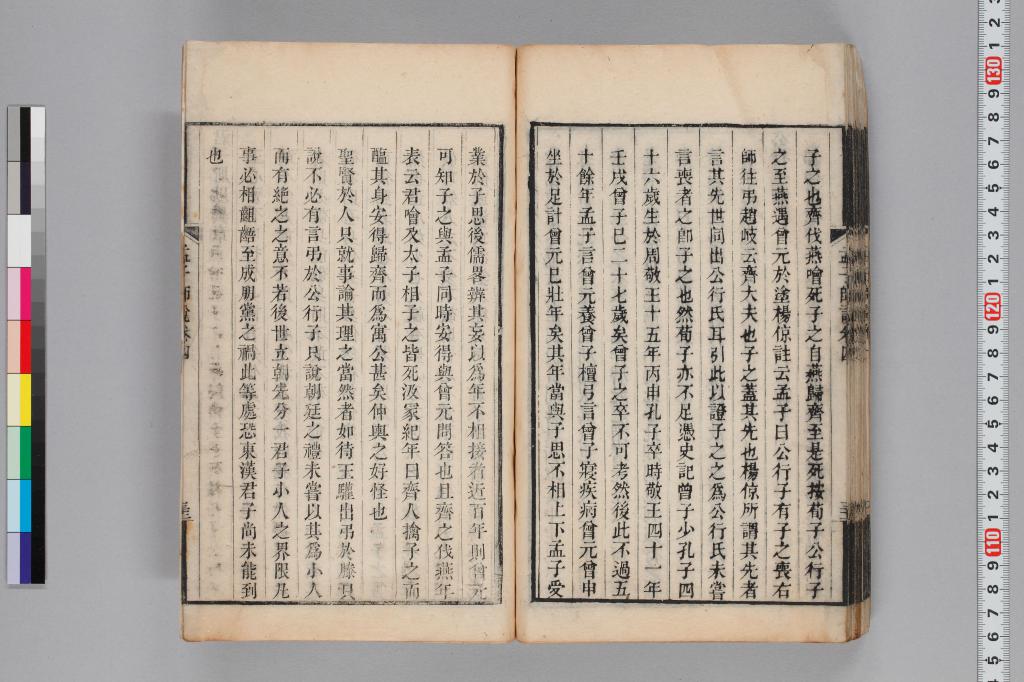 子之也齊伐燕噲死子之自燕歸齊至是死按荀子公行子
之至燕遇曾元於塗楊倞註云孟子曰公行子有子之喪右
師往弔趙岐云齊大夫也子之蓋其先也楊倞所謂其先者
言其先世同出公行氏耳引此以證子之之為公行氏未嘗
言喪者之卽子之也然荀子亦不足憑史記曾子少孔子四
十六歲生於周敬王十五年丙申孔子卒時敬王四十一年
壬戌曾子巳二十七歲矣曾子之卒不可考然後此不過五
十餘年孟子言曾元養曾子檀弓言曾子寢疾病曾元曾申
坐於足計曾元巳壯年矣其年當與子思不相上下孟子受
業於子思後儒畧辨其妄以爲年不相接者近百年則曾元
可知子之與孟子同時安得與曾元問答也且齊之伐燕年
表云君噲及太子相子之皆死汲冢紀年曰齊人擒子之而
醢其身安得歸齊而爲寓公甚矣仲輿之好怪也
聖賢於人只就事論其理之當然者如待王驩出弔於滕只
說不必有言弔於公行子只說朝廷之禮未嘗以其爲小人
而有絕之之意不若後世立朝先分一君子小人之界限凡
事必相齟齬至成朋黨之禍此等處恐東漢君子尚未能到
也
孟子師說卷四
孟子師說卷四